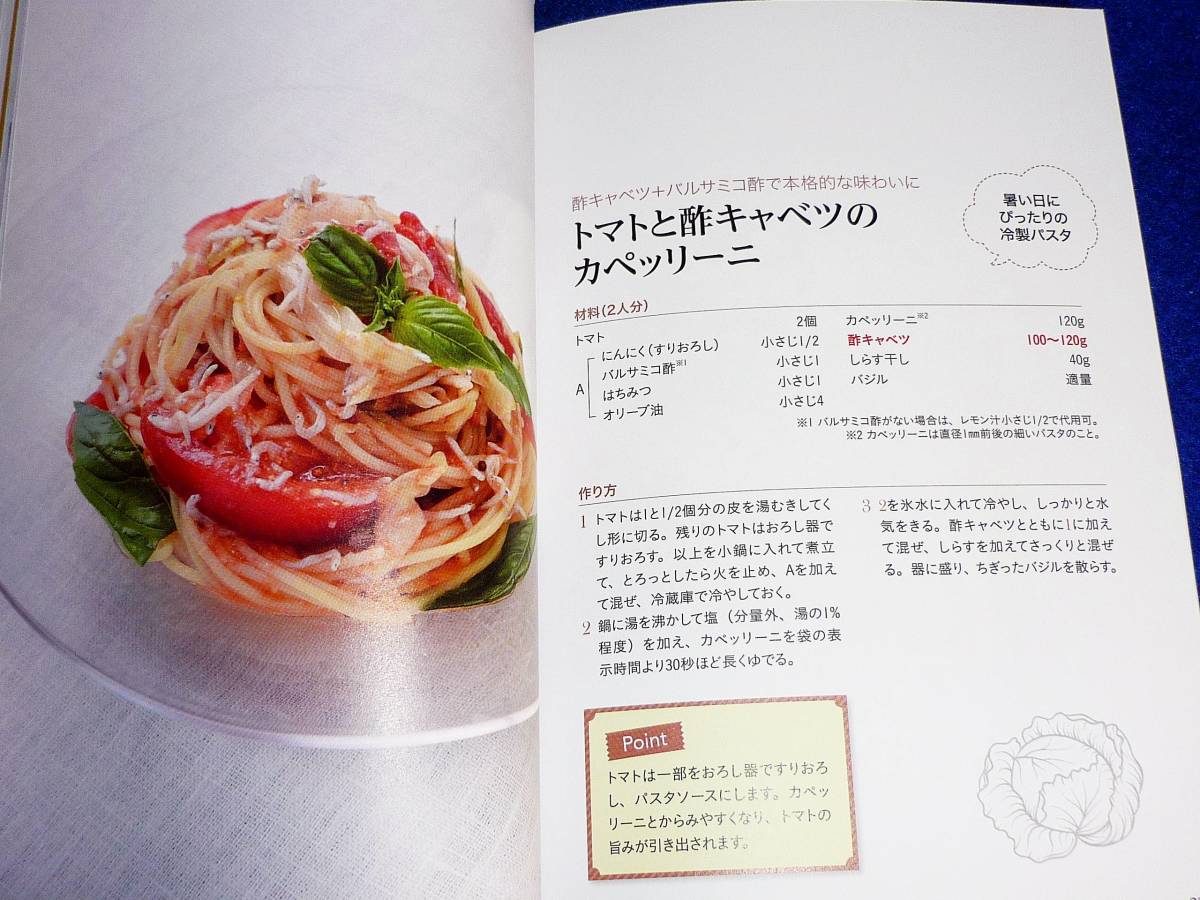 酢キャベツ+バルサミコ酢で本格的な味わいに
トマトと酢キャベツの
カペッリーニ
暑い日に
ぴったりの
冷製パスタ
材料(2人分)
トマト 2個
A
にんにく(すりおろし) 小さじ1/2
バルサミコ酢※1 小さじ1
はちみつ 小さじ1
オリーブ油 小さじ4
カペッリーニ※2 120g
酢キャベツ 100〜120g
しらす干し 40g
バジル 適量
※1 バルサミコ酢がない場合は、レモン汁小さじ1/2で代用可。
※2 カペッリーニは直径1mm前後の細いパスタのこと。
作り方
1 トマトは1と1/2個分の皮を湯むきしてく
し形に切る。残りのトマトはおろし器で
すりおろす。以上を小鍋に入れて煮立
て、とろっとしたら火を止め、Aを加え
て混ぜ、冷蔵庫で冷やしておく。
2 鍋に湯を沸かして塩(分量外、湯の1%
程度)を加え、カペッリーニを袋の表
示時間より30秒ほど長くゆでる。
3 2を氷水に入れて冷やし、しっかりと水
気をきる。酢キャベツとともに1に加え
て混ぜ、しらすを加えてさっくりと混ぜ
る。器に盛り、ちぎったバジルを散らす。
Point
トマトは一部をおろし器ですりおろ
し、パスタソースにします。カペッ
リーニとからみやすくなり、トマトの
旨みが引き出されます。